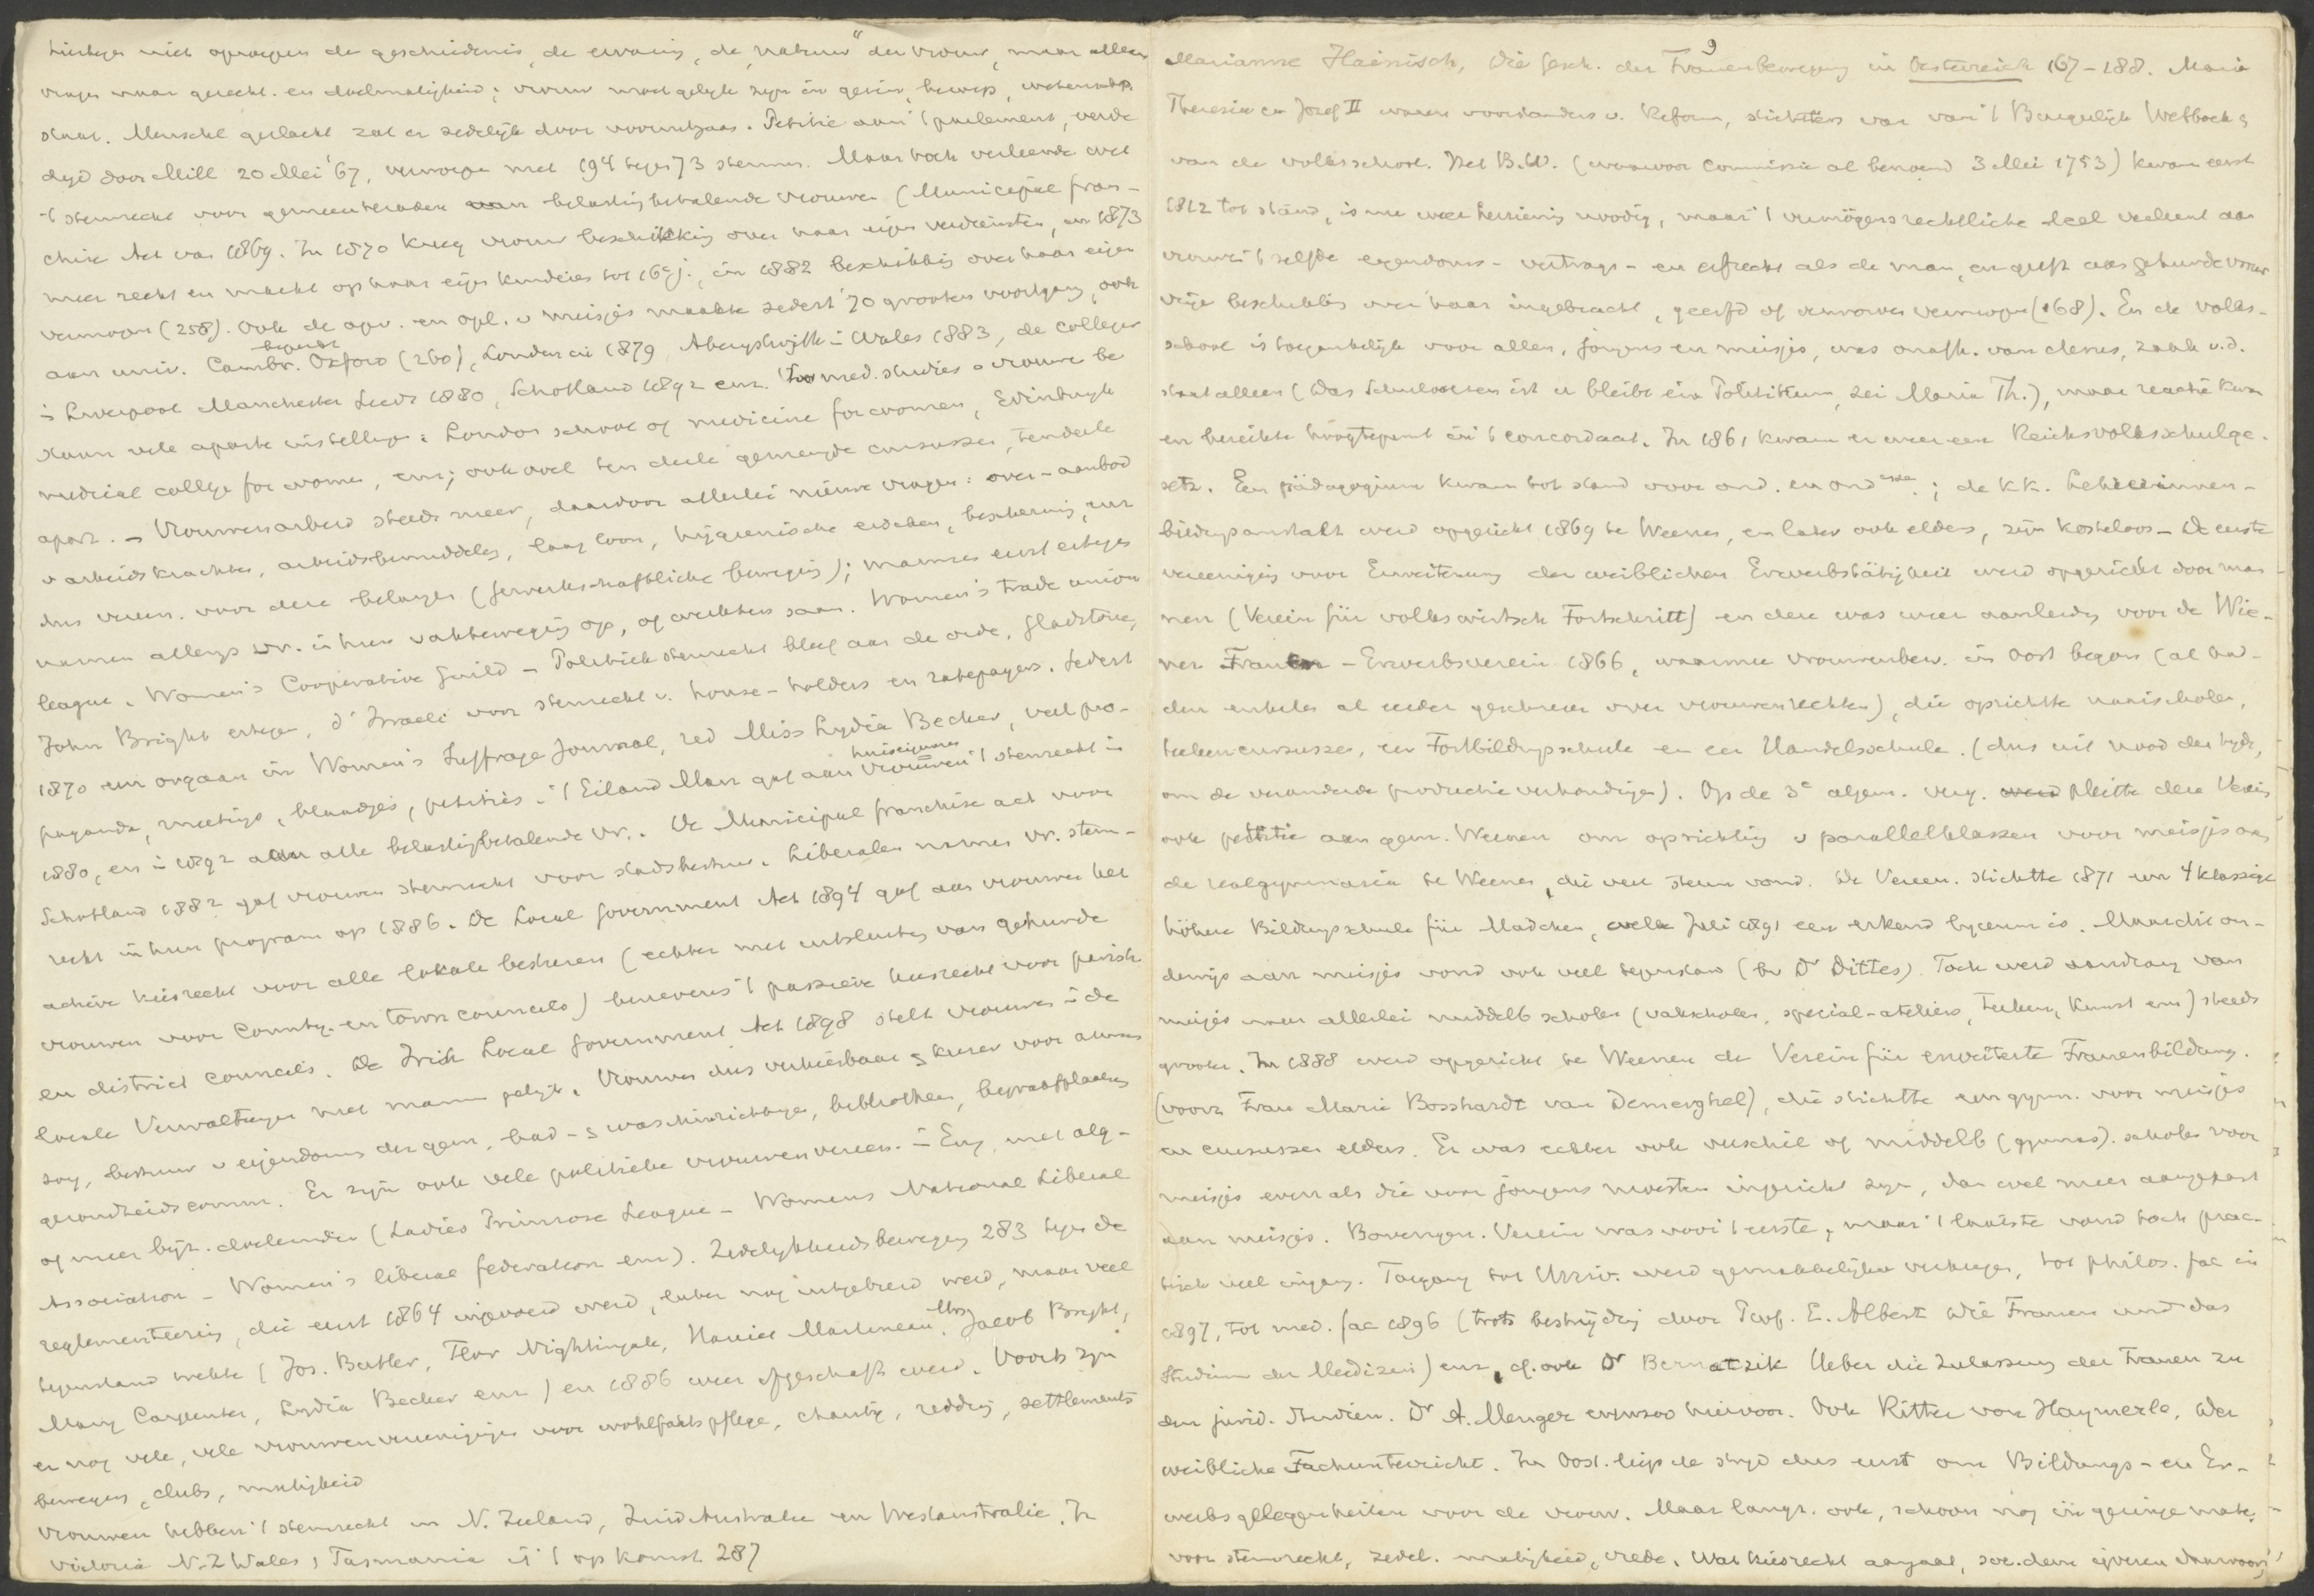 niet opvoeden de geschiedenis, de ervaring, de „natuur" der vrouw, maar alleen
vragen naar gerecht. en doelmatigheid; vrouw moet gelijk zijn in gezin, beroep, wetensch.
staat. Menschel. geslacht zal er zedelijk door vooruitgaan. Petitie aan 't parlement, verde
digd door Mill 20 Mei '67, verworpen met 194 tegen 73 stemmen. Maar toch verleende wet
't stemrecht voor gemeenteraden aan belastingbetalende vrouwen (Municipal fran-
chise Act van 1869. In 1870 kreeg vrouw beschikking over haar eigen verdiensten, in 1873
meer recht en macht op haar eigen kinderen tot 16e j., in 1882 beschikking over haar eigen
vermogen (258). Ook de opv. en opl. v meisjes maakte sedert '70 grooten voortgang, ook
aan univ. Cambr. Oxford (260), Londen in 1879, Aberystwyth in Wales 1883, de colleges
in Liverpool Manchester Leeds 1880, Schotland 1892 enz. Voor med. studies v vrouwen be
staan vele aparte instellingen: London school of medicine for women, Edinburgh
medical college for women, enz; ook wel ten deele gemengde cursussen, tendeele
apart. – Vrouwenarbeid steeds meer, daardoor allerlei nieuwe vragen: over-aanbod
v arbeidskrachten, arbeidsbemiddeling, laag loon, hygienische eischen, bescherming, enz
dus vereen. voor deze belangen (gewerkschaftliche beweging); mannen eerst ertegen
namen allengs vr. in hun vakbeweging op, of werkten saam. Women's trade union
league, Women's Cooperative Guild – Politiek stemrecht bleef aan de orde, Gladstone,
John Bright ertegen, d'Israeli voor stemrecht v. house-holders en ratepayers. Sedert
1870 een orgaan in Women's Suffrage Journal, red Miss Lydia Becker, veel pro-
paganda, meetings, blaadjes, petities. 't Eiland Man gaf aan huiseigenares vrouwen 't stemrecht in
1880, en in 1892 aan alle belastingbetalende vr.. De Municipal franchise act voor
Schotland 1882 gaf vrouwen stemrecht voor stadsbestuur. Liberalen namen vr. stem-
recht in hun program op 1886. De Local Government Act 1894 gaf aan vrouwen het
actieve kiesrecht voor alle lokale besturen (echter met uitsluiting van gehuwde
vrouwen voor County- en town councils) benevens 't passieve kiesrecht voor parish
en district councils. De Irish Local Government Act 1898 stelt vrouwen in de
locale Verwaltungen met mannen gelijk. Vrouwen dus verkiesbaar & kiezer voor armen
zorg, bestuur v eigendoms der gem, bad- & waschinrichtingen, bibliotheken, begraafplaatsen
gezondheidscomm. Er zijn ook vele politieke vrouwenvereen. in Eng, met alg-
of meer bijz. doeleinden (Ladies Primrose League – Womens National Liberal
Association – Women's liberal federation enz). Zedelijkheidsbeweging 283 tegen de
reglementeering, die eerst 1864 ingevoerd werd, later nog uitgebreid werd, maar veel
tegenstand wekte (Jos. Butler, Flor Nightingale, Harriet Martineau, Mrs Jacob Bright,
Mary Carpenter, Lydia Becker enz) en 1886 weer afgeschaft werd. Voorts zijn
er nog vele, vele vrouwenvereenigingen voor wohlfahrtspflege, charity, redding, settlements
bewegen, clubs, matigheid
Vrouwen hebben 't stemrecht in N. Zeeland, Zuid Australie en Westaustralie. In
Victoria N-Z Wales, Tasmania is 't op komst 287
9
Marianne Hainisch, Die Gesch. der Frauenbewegung in Oesterreich 167-188. Maria
Theresia en Jozef II waren voorstanders v. Reform, stichtters van 't Burgerlijk Wetboek &
van de volksschool. Het B.W. (waarvoor Commissie al benoemd 3 Mei 1753) kwam eerst
1812 tot stand, is nu weer herziening noodig, maar 't vermögensrechtliche deel verleent aan
vrouw 't zelfde eigendoms- vertrags- en erfrecht als de man, en geeft aan gehuwde vrouw
vrije beschikking over haar ingebracht, geerfd of verworven vermogen (168). En de volks-
school is toegankelijk voor allen, jongens en meisjes, was onafh. van clerus, zaak v.d.
staat alleen (Das Schulwesen ist u bleibt ein Politikum, zei Maria Th.), maar reactie kwam
en bereikte hoogtepunt in 't concordaat. In 1861 kwam er weer een Reichsvolksschulge-
setz. Een pädagogium kwam tot stand voor ond. en ond essen; de K.K. Lehrerinnen-
bildungsanstalt werd opgericht 1869 te Weenen, en later ook elders, zijn kosteloos – De eerste
vereeniging voor Erweiterung der weiblichen Erwerbstätigkeit werd opgericht door man-
nen (Verein für volkswirtsch Fortschritt) en deze was weer aanleiding voor de Wie-
ner Frauen-Erwerbsverein 1866, waarmee vrouwenbew. in Oost begon (al had-
den enkelen al eerder geschreven over vrouwenrechten), die oprichtte naaischolen,
teekencursussen, een Fortbildungsschule en een Handelsschule. (dus uit nood der tijden,
om de veranderde productie verhoudingen). Op de 3e algem. verg. pleitte deze Verein
ook petitie aan gem. Weenen om oprichting v parallelklassen voor meisjes aan
de realgymnasia te Weenen, die veel steun vond. De Vereen. stichtte 1871 een 4 klassige
höhere Bildungsschule für Mädchen, welke Juli 1891 een erkend lyceum is. Maar dit on-
derwijs aan meisjes vond ook veel tegenstand (bv Dr Dittes). Toch werd aandrang van
meisjes naar allerlei middelb scholen (vakscholen, special-ateliers, teeken, Kunst enz) steeds
grooter. In 1888 werd opgericht te Weenen de Verein für erweiterte Frauenbildung.
(voorz Frau Marie Bosshardt van Demerghel), die stichtte een gymn. voor meisjes
en cursussen elders. Er was echter ook verschil of middelb (gymnas). scholen voor
meisjes even als die voor jongens moesten ingericht zijn, dan wel meer aangepast
aan meisjes. Bovengen. Verein was voor 't eerste, maar 't laatste vond toch prac-
tisch veel ingang. Toegang tot Univ. werd gemakkelijker verkregen, tot philos. fac in
1897, tot med. fac 1896 (trots bestrijding door Prof. E. Albert Die Frauen und das
Studium der Medizin) enz, cf. ook Dr Bernatzik Ueber die Zulassung der Frauen zu
den jurid. Studien. Dr A. Menger evenzoo hiervoor. Ook Ritter von Haymerle, Der
weibliche Fachunterricht. In Oost. liep de strijd dus eerst om Bildungs- en Er-
werbsgelegenheiten voor de vrouw. Maar langz. ook, schoon nog in geringe mate,
voor stemrecht, zedel. matigheid, vrede. Wat kiesrecht aangaat, soc.dem ijveren daarvoor,